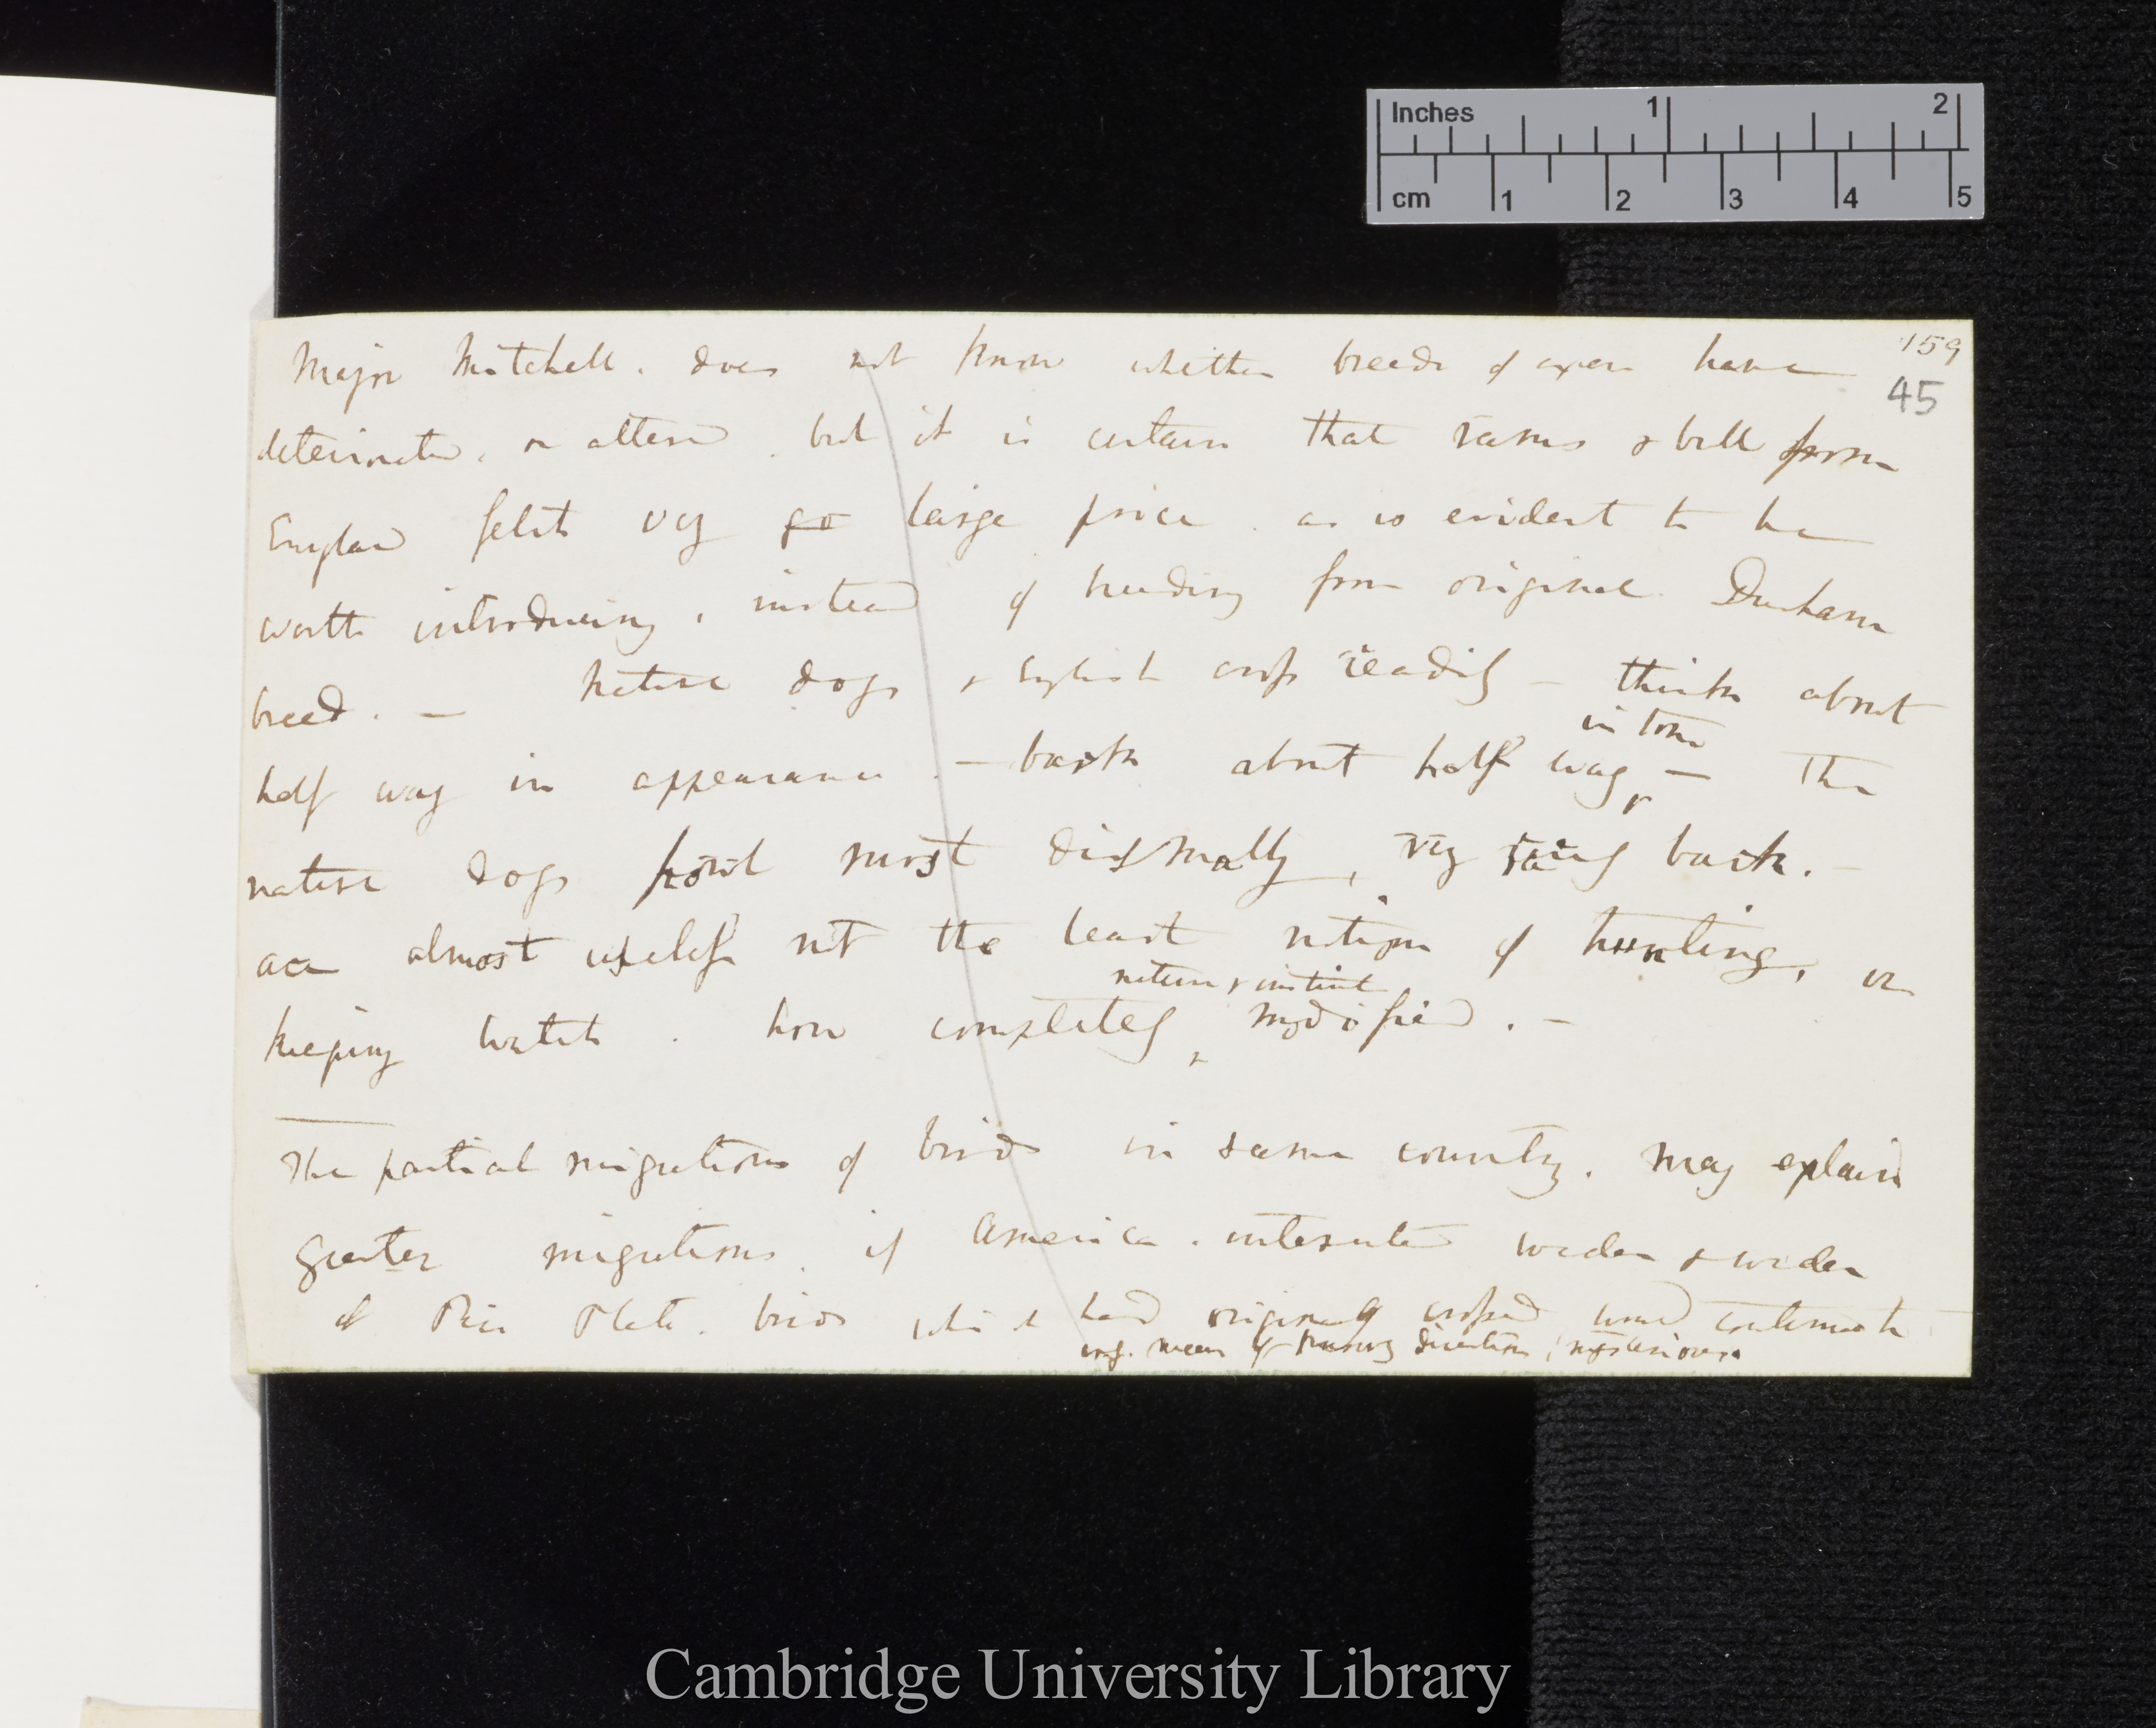 Inches 1 2
cm 1 2 3 4 5
159
45
Major Mitchell. does not know whether breeds of oxen have
deteriorated. or altered. but it is certain that rams & bull from
England fetch very go large price. as is evident to be
worth introducing, instead of breeding from original Durham
breed. — Native dogs & English cross readily — thinks about
half way in appearance. — barks about half way in tone — The
native dogs howl most dismally, very rarely bark. —
are almost useless not the least notion of hunting, or
keeping watch. how completely nature & instinct modified. —
The partial migrations of birds in same country. may explain
greater migrations. if America. intersected wider & wider
of Rio Plata. birds which had originally crossed would continue to
mean of knowing direction, mysterious.
Cambridge University Library